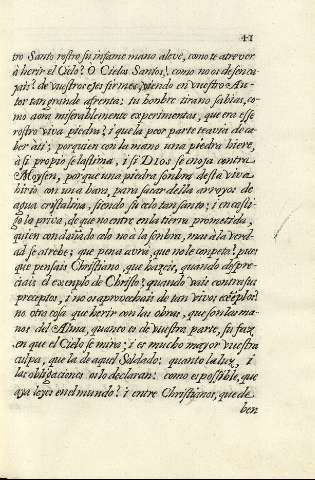 41
tro Santo rostro su infame mano aleve, como te atrever
à herir el Cielo? O Cielos Santos! como no os desenca
xais? de vuestros ejes firmes, viendo en vuestro Au-
tor tan grande afrenta: tu hombre tirano sabias, co-
mo aora miserablemente experimentas, que era esse
rostro viva piedra; i que la peor parte te avia de ca-
ber à ti; porquien con la mano una piedra hiere,
à si propio se lastima, i si Dios se enoja contra
Moysen, porque una piedra sombra desta viva
hirió con una bara, para sacar della arroyos de
agua cristalina, siendo su celo tan santo; i en casti-
go la priva, de que no entre en la tierra prometida,
quien con dañado celo no à la sombra, mas à la verd-
ad se atrebe; que pena avra, que no le competa? pues
que pensais Christiano, que hazeis, quando despre-
ciais el exemplo de Christo? quando vais contra sus
preceptos, i no os aprovechais de tan vivos exẽplos?
no otra cosa que herir con las obras, que son las ma-
nos del Alma, quanto es de vuestra parte, su faz
en que el Cielo se mira; i es mucho mayor vuestra
culpa, que la de aquel Soldado: quanto la luz, i
las obligaciones os lo declaran: como es possible, que
aya leyes en el mundo? i entre Christianos, que de
ben